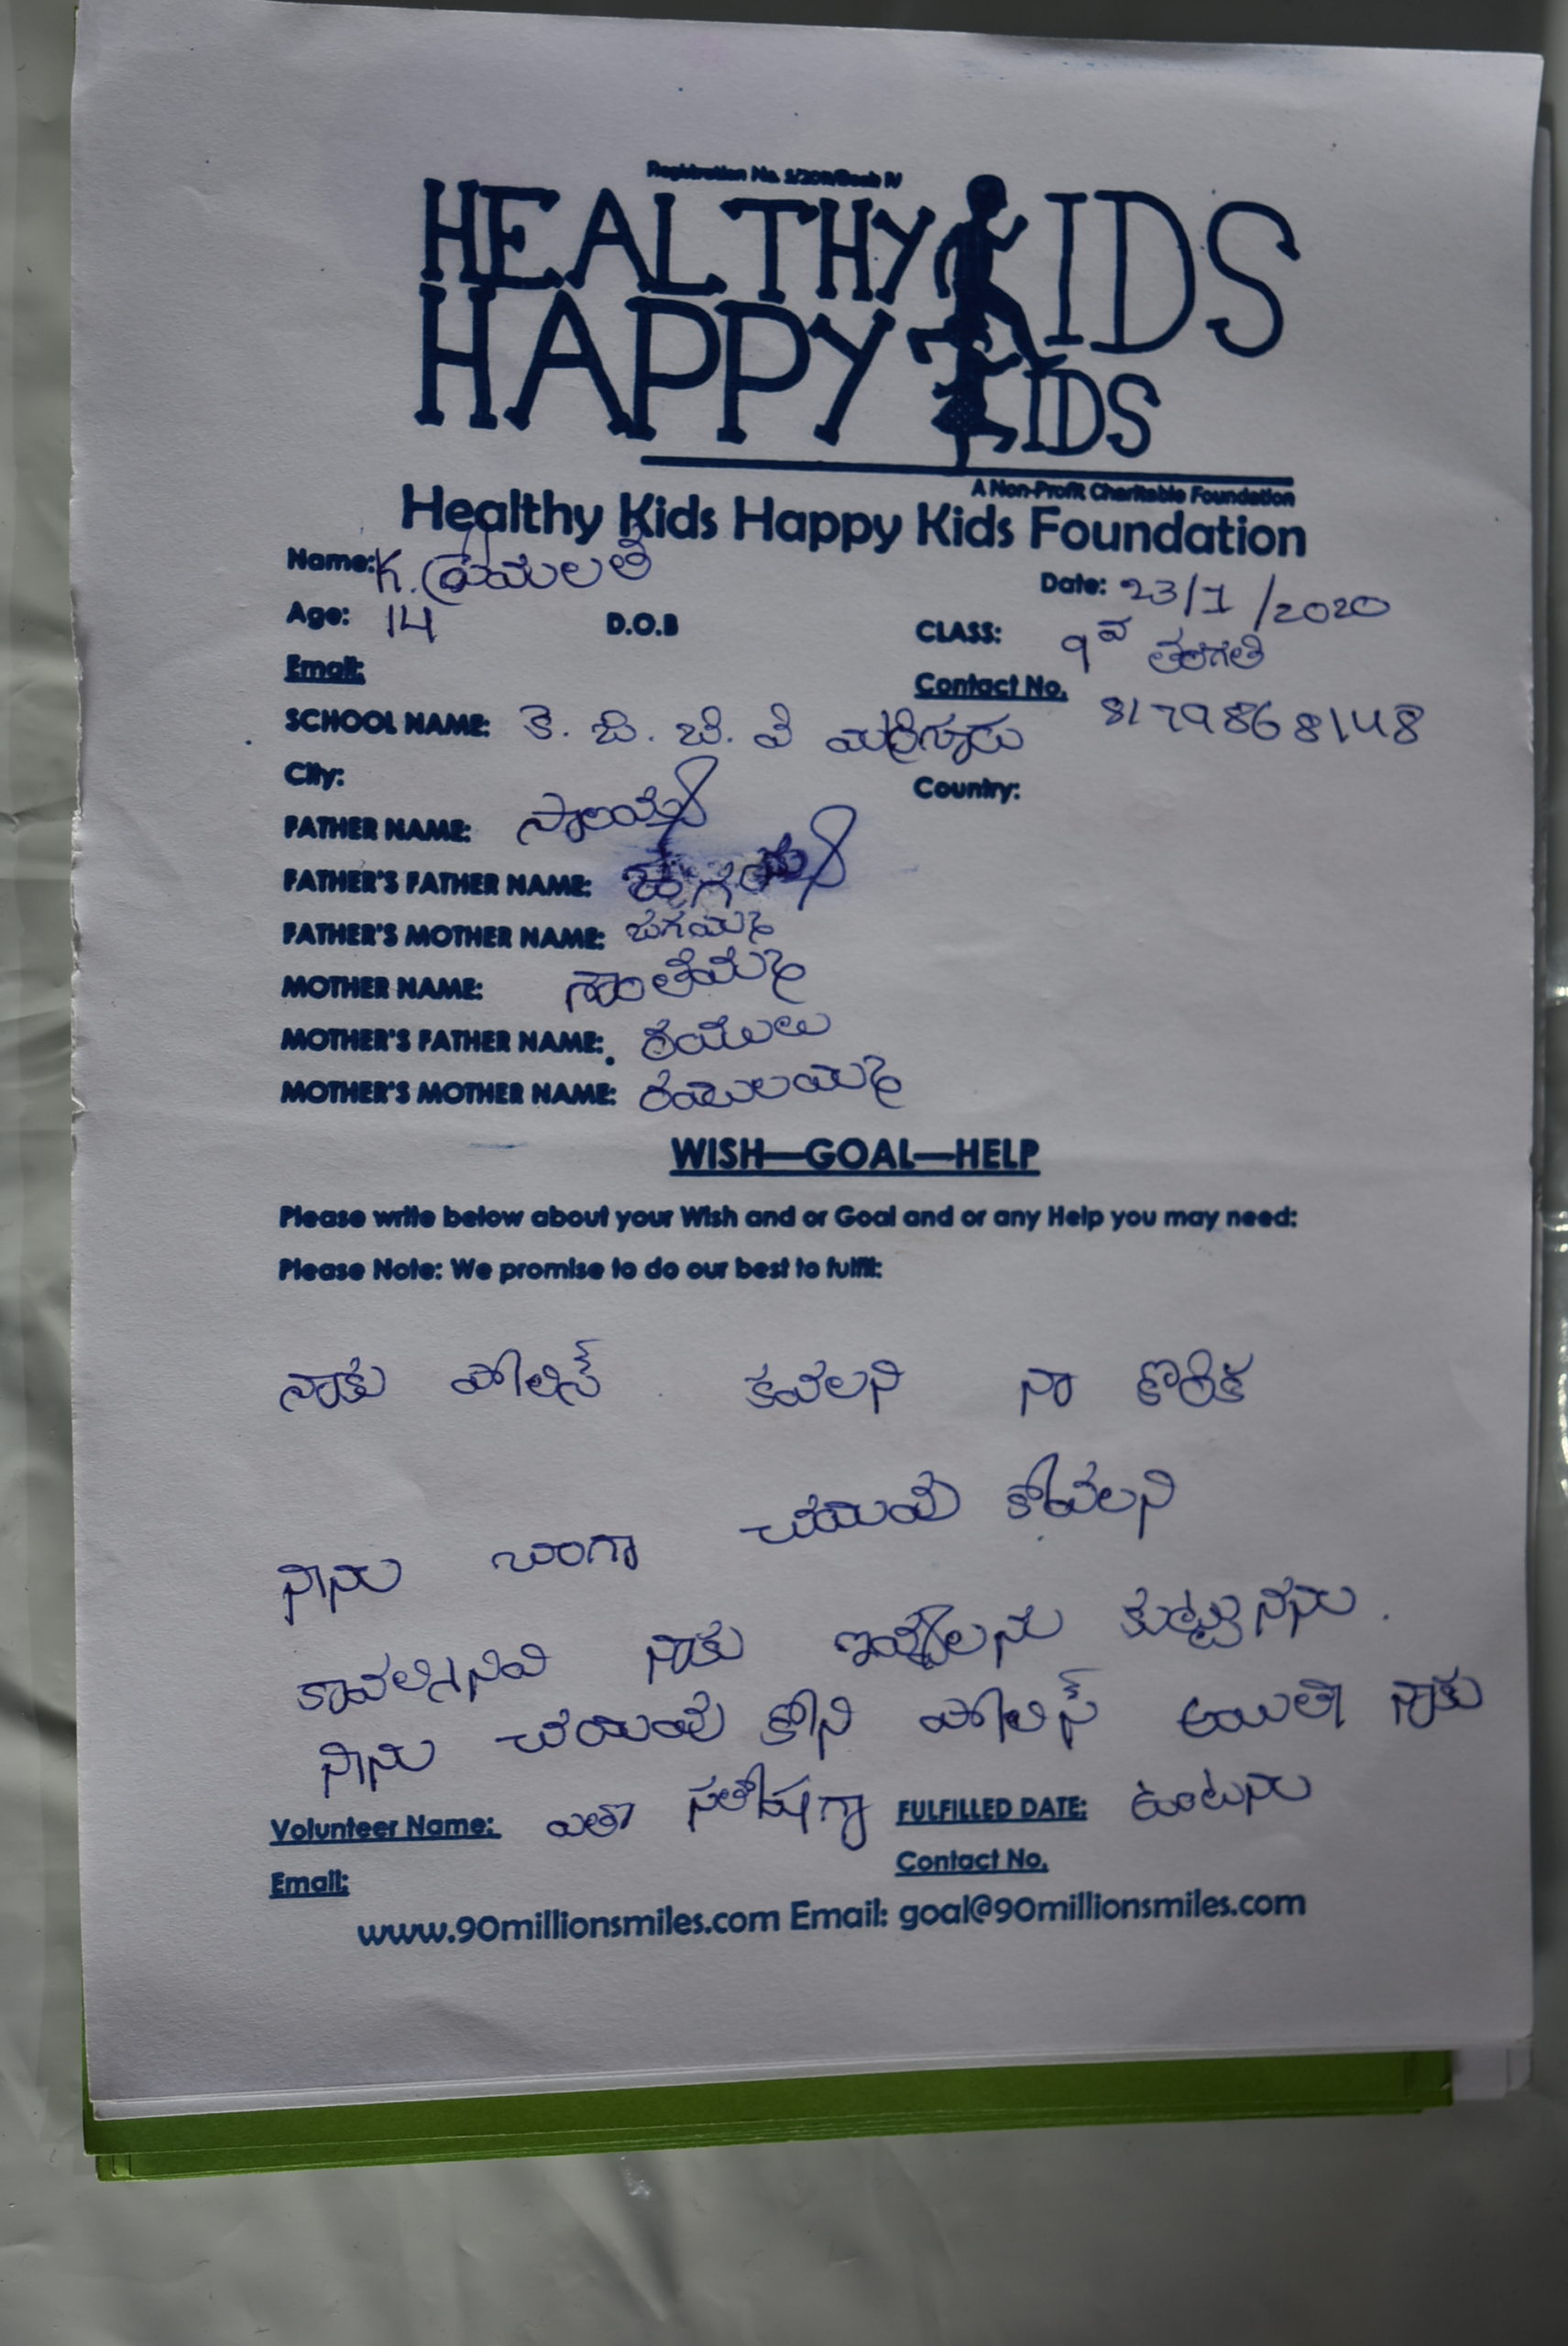 Registration No. 5/2011/Book IV
HEALTHY KIDS
HAPPY KIDS
A Non-Profit Charitable Foundation
Healthy Kids Happy Kids Foundation
Name: K. ప్రేమలత
Date: 23/1/2020
Age: 14 D.O.B
CLASS: 9వ తరగతి
Email:
Contact No. 8179868148
SCHOOL NAME: కె. జి. బి. వి
City:
Country:
FATHER NAME: సాలయ్య
FATHER'S FATHER NAME:
FATHER'S MOTHER NAME: జగమ్మ
MOTHER NAME: శాంతమ్మ
MOTHER'S FATHER NAME: రమలు
MOTHER'S MOTHER NAME: రములమ్మ
WISH—GOAL—HELP
Please write below about your Wish and or Goal and or any Help you may need:
Please Note: We promise to do our best to fulfil:
నాకు పోలిస్ కవలని నా కొరిక
నాను బాగా చదువు కోవలని
నాకు కుట్టునను.
నాను చదువు కోని పోలిస్ అయితా నాకు
Volunteer Name: ఎతా సతోషగ్గా FULFILLED DATE: ఊటను
Email:
Contact No.
www.90millionsmiles.com Email: goal@90millionsmiles.com